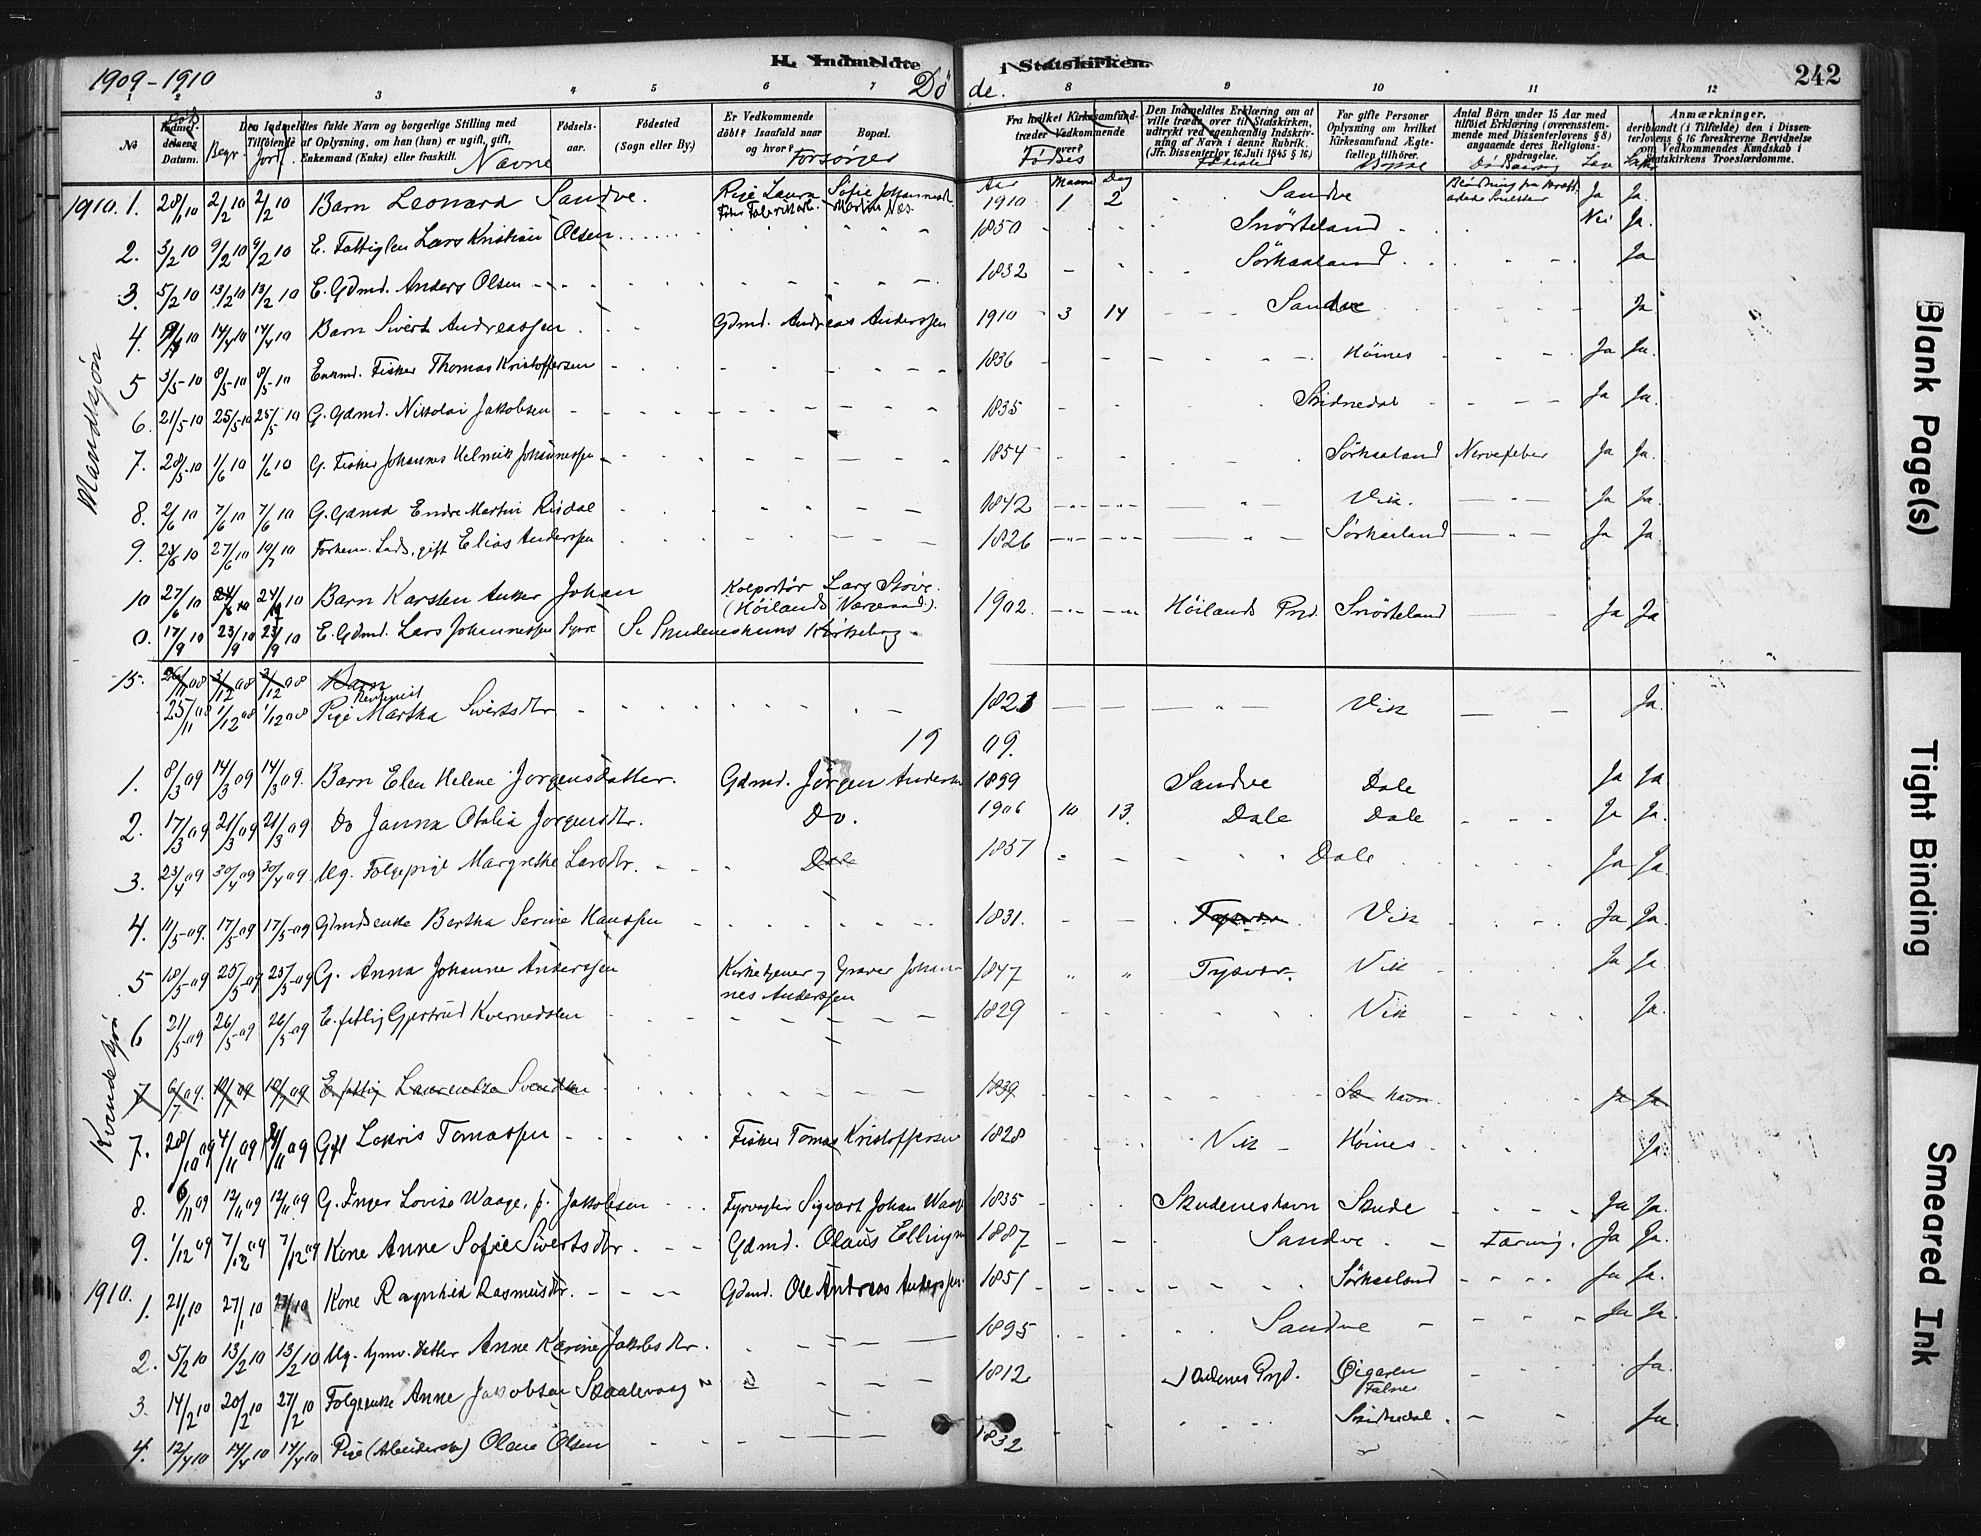 1909-1910
II. Indmeldte i Statskirken.
Döde.
242
1 2 3 4 5 6 7 8 9 10 11 12
No
Indmeldelsens Datum.
Död
Begr.
Jordf.
Den Indmeldtes fulde Navn og borgerlige Stilling med Oplysning, om han (hun) er ugift, gift, Enkemand (Enke) eller fraskilt.
Navne
Fødsels-aar.
Födested (Sogn eller By.)
Er Vedkommende döbt? Isaafald naar og hvor?
Bopæl.
Forsörger
Fra hvilket Kirkesamfund træder Vedkommende over?
Fødsels
Den Indmeldtes Erklæring om at ville træde over til Statskirken, udtrykt ved egenhændig Indskrivning af Navn i denne Rubrik. (Jfr. Dissenterlov 16 Juli 1845 § 16.)
Fødested
For gifte Personer Oplysning om hvilket Kirkesamfund Ægtefællen tilhörer.
Bopæl
Antal Börn under 15 Aar med tilföiet Erklæring (overensstemmende med Dissenterlovens § 8) angaaende deres Religionsopdragelse.
Dödsaarsag
Anmærkninger, deriblandt (i Tilfælde) den i Dissenterlovens § 16 foreskrevne Bevidnelse om Vedkommendes Kundskab i Statskirkens Troeslærdomme.
Aar Maaned Dag
1910. 1. 28/1 10 2/2 10 2/2 10 Barn Leonard Sandve. Pige Laura Sofie Johannesd. 1910 1 2 Sandve Ja Ja.
2. 3/2 10 9/2 10 9/2 10 E. Fattiglem Lars Kristian Olsen 1850 Snörteland Nei Ja.
3. 5/2 10 13/2 10 13/2 10 E. Gdmd. Anders Olsen 1832 Sörhaaland Ja
Mandkjøn
4. 9/4 10 14/4 10 14/4 10 Barn Sivert Andreassen Gdmd. Andreas Anderssen 1910 3 14 Sandve Ja
5 3/5-10 8/5-10 8/5-10 Enkmd. Fisker Thomas Kristoffersen 1836 Höines Ja Ja.
6. 21/5-10 25/5-10 25/5-10 G. Gdmd. Nikolai Jakobsen 1835 Skidnedal Ja Ja.
7. 28/5-10 1/6 10 1/6 10 G. Fisker Johannes Helmik Johannessen 1854 Sörhaaland Nervefeber Ja Ja.
8. 2/6 10 7/6 10 7/6 10 G. Gdmd Endre Martin Risdal 1842 Vik. Ja Ja.
9. 27/6 10 19/7 10 Elias Anderssen 1826 Sörhaaland Ja Ja.
10 27/6 10 Barn Karsten Anker Johan Kolportør Lars Stöve. (Höilands Varaand). 1902. Höilands Prgd. Snörteland Ja Ja
0. 17/9 10 23/9 10 23/9 10 E. Gdmd. Lars Johannessen Syre Se Skudeneshavns Kirkebog.
15. 26/11 08 3/12 08 3/12 08 Barn
25/11 08 1/12 08 1/12 08 Pige Martha Sivertsdtr 1823 Vik Ja.
1909.
1. 8/3 09 14/3 09 14/3 09. Barn Elen Helene Jorgensdatter. Gdmd. Jörgen Anders 1899 Sandve Dale Ja Ja.
2. 17/3 09 21/3 09 21/3 09 Do Janna Otalia Jorgensdtr. Do. 1906 10 13. Dale Dale Ja Ja.
3. 23/4 09 30/4 09 30/4 09 Ug. Folgepige Margrethe Larsdtr. Dale 1857 Dale Ja Ja.
4. 11/5-09. 17/5 09 17/5-09 Gdmdsenke Bertha Serine Hanssen 1831. Tysvær Vik Ja Ja.
5 18/5-09 25/5-09 25/5-09 G. Anna Johanne Anderssen Kirketjener og Graver Johannes Anderssen 1847 Tysvær. Vik Ja Ja.
Kvindekjøn
6 21/5-09 26/5-09 26/5-09 E. fattig Gjertrud Kvernedalen 1829 Vik Ja.
7 6/7 09. E. fattig Laurentze Svendsen 1839 Sk havn Ja Ja.
7. 28/10 09 4/11 09 4/11 09 Gift Lovris Tomassen Fisker Tomas Kristoffersen 1828 Vik Höines Ja.
8. 6/11 09 12/11 09 12/11 09 G. Inger Lovise Waage, f. Jakobsen Fyrvogter Sigvart Johan Waage 1835 Skudeneshavn Skude Ja Ja.
9. 1/12 09 7/12 09 7/12 09 Kone Anne Sofie Sivertsdtr. Gdmd. Olaus Ellings 1887 Sandve Tæring. Ja Ja.
1910. 1. 21/1 10 27/1 10 27/1 10 Kone Ragnhild Rasmusdtr. Gdmd. Ole Andreas Anderssen 1851 Sörhaaland Ja Ja.
2. 5/2 10 13/2 10 13/2 10 Ug. Gmd. datter Anne Karine Jakobsdtr. 1895 Sandve Ja Ja.
3. 14/2 10 20/2 10 27/2 10 Folgeenke Anne Jakobsen Skaalevaag 1812 Skudenes Prgd. Öigaren Falnes Ja.
4. 12/4 10 17/4 10 17/4 10 Pige (Arbeiderske) Olene Olsen 1832 Skidnedal Ja.
Blank Page(s)
Tight Binding
Smeared Ink